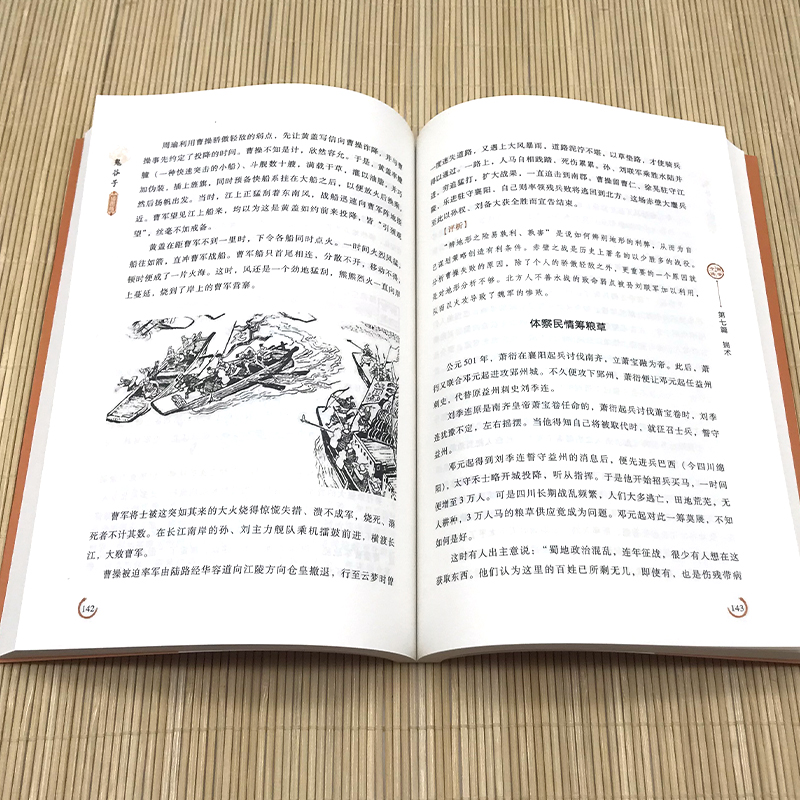 鬼谷子
周瑜利用曹操骄傲轻敌的弱点，先让黄盖写信向曹操诈降，并与曹
操事先约定了投降的时间。曹操不知是计，欣然容允。于是，黄盖率艨
艟（一种快速突击的小船）、斗舰数十艘，满载干草，灌以油脂，并巧
加伪装，插上旌旗，同时预备快船系挂在大船之后，以便放火后换乘，
然后扬帆出发。当时，江上正猛刮着东南风，战船迅速向曹军阵地接
近。曹军望见江上船来，均以为这是黄盖如约前来投降，皆“引颈观
望”，丝毫不加戒备。
黄盖在距曹军不到一里时，下令各船同时点火。一时间火烈风猛，
船往如箭，直冲曹军战船。曹军船只首尾相连，分散不开，移动不得，
顿时便成了一片火海。这时，风还是一个劲地猛刮，熊熊烈火一直向岸
上蔓延，烧到了岸上的曹军营寨。
曹军将士被这突如其来的大火烧得惊慌失措、溃不成军，烧死、溺
死者不计其数。在长江南岸的孙、刘主力舰队乘机擂鼓前进，横渡长
江，大败曹军。
曹操被迫率军由陆路经华容道向江陵方向仓皇撤退，行至云梦时曾
142
一度迷失道路，又遇上大风暴雨，道路泥泞不堪，以草垫路，才使骑兵
得以通过。一路上，人马自相践踏，死伤累累。孙、刘联军乘胜水陆并
进，穷追猛打，扩大战果，一直追击到南郡。曹操留曹仁、徐晃驻守江
陵，乐进驻守襄阳，自己则率领残兵败将逃回到北方。这场赤壁大鏖兵
至此以孙权、刘备大获全胜而宣告结束。
【评析】
“辨地形之险易孰利、孰害”是说如何辨别地形的利弊，从而为自
己谋划策略创造有利条件。赤壁之战是历史上著名的以少胜多的战役。
分析曹操失败的原因，除了个人的骄傲轻敌之外，更重要的一个原因就
是对地形分析不够。北方人不善水战的致命弱点被孙刘联军加以利用，
从而以火攻导致了魏军的惨败。
体察民情筹粮草
公元501年，萧衍在襄阳起兵讨伐南齐，立萧宝融为帝。此后，萧
衍又联合邓元起进攻郢州城。不久便攻下郢州，萧衍便让邓元起任益州
刺史，代替原益州刺史刘季连。
刘季连原是南齐皇帝萧宝卷任命的，萧衍起兵讨伐萧宝卷时，刘季
连犹豫不定，左右摇摆。当他得知自己将被取代时，就征召士兵，誓守
益州。
邓元起得到刘季连誓守益州的消息后，便先进兵巴西（今四川绵
阳），太守禾士略开城投降，听从指挥。于是他开始招兵买马，一时间
便增至3万人。可是四川长期战乱频繁，人们大多逃亡，田地荒芜，无
人耕种，3万人马的粮草供应竟成为问题。邓元起对此一筹莫展，不知
如何是好。
这时有人出主意说：“蜀地政治混乱，连年征战，很少有人想在这
获取东西。他们认为这里的百姓已所剩无几，即使有，也是伤残带病
第七篇
揣术
143